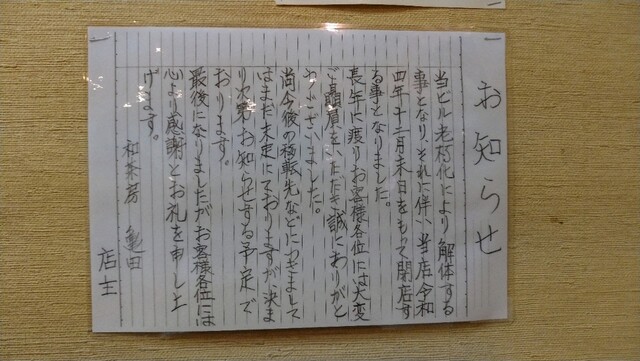 お知らせ
当ビル老朽化により解体する
事となり、それに伴い当店令和
四年十二月末日をもって閉店す
る事となりました。
長年に渡りお客様各位には大変
ご贔屓をいただき誠にありがと
うございました。
尚今後の移転先などにつきまして
はまだ未定にておりますが、決ま
り次第お知らせする予定で
おります。
最後になりましたがお客様各位には
心より感謝とお礼を申し上
げます。
和茶房 亀田
店主